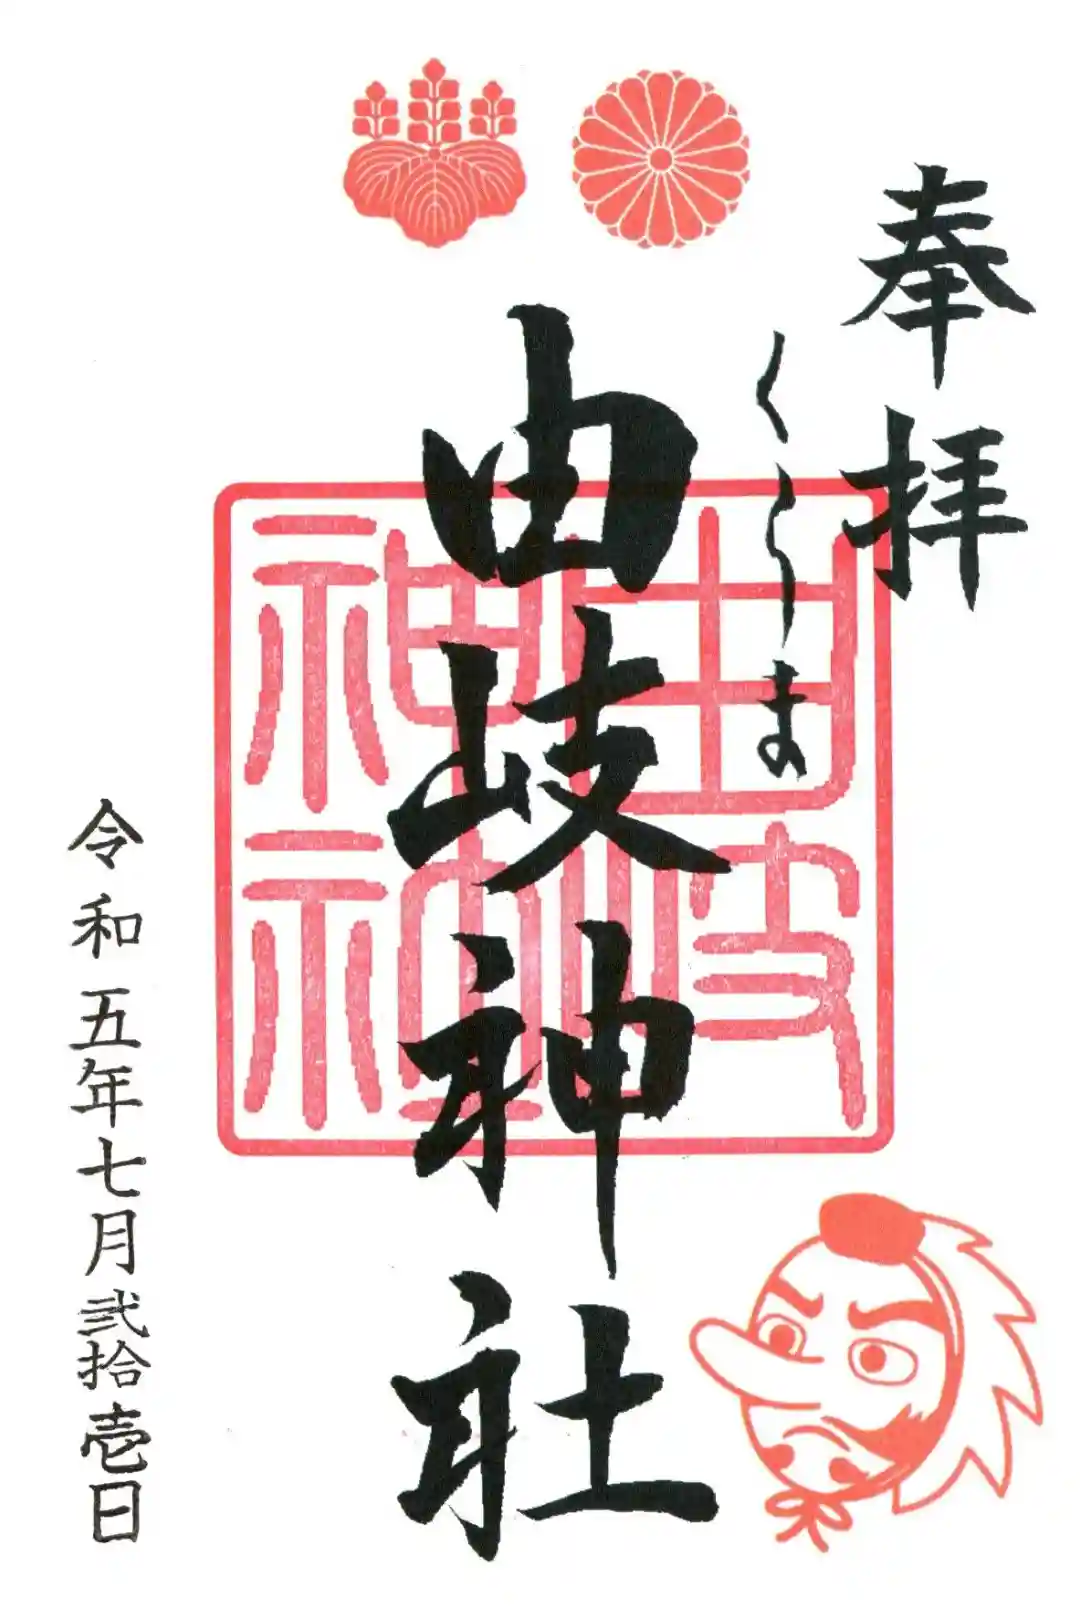 奉拝
くらま
由岐神社
由岐
神社
令和五年七月弐拾壱日